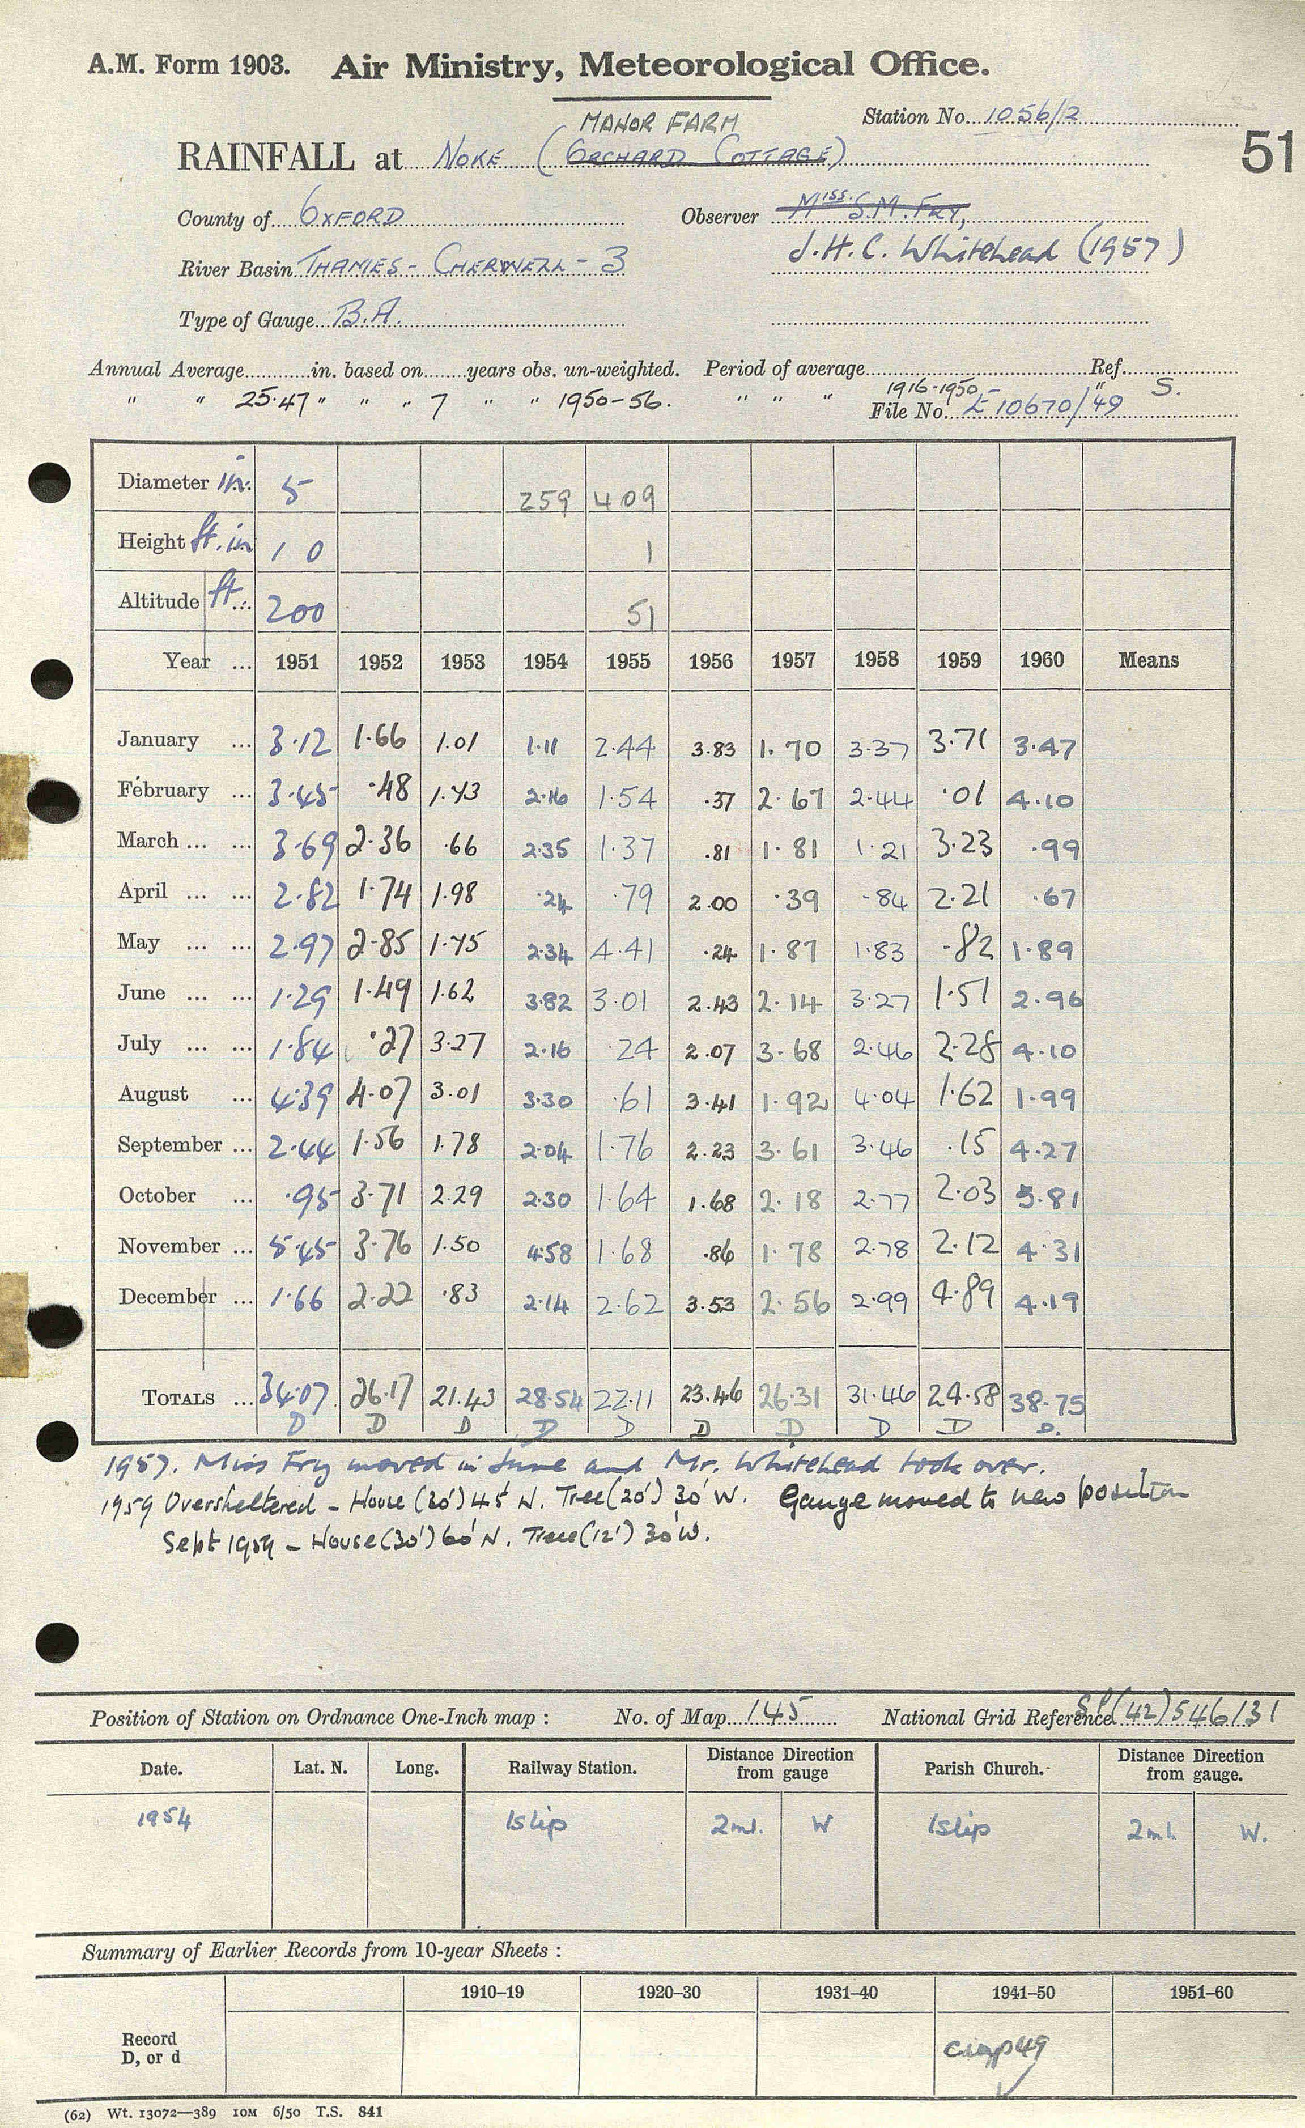 A.M. Form 1903. Air Ministry, Meteorological Office.
Station No. 1056/2
51
MANOR FARM
RAINFALL at NOKE (ORCHARD COTTAGE)
County of OXFORD Observer Miss. S.M. FRY,
River Basin THAMES - CHERWELL - 3 J.H.C. Whitehead (1957)
Type of Gauge B.A.
Annual Average in. based on years obs. un-weighted. Period of average Ref.
" " 25.47 " " " 7 " " 1950-56. " " " 1916-1950 " S.
File No. E 10670/49
Diameter in. 5 259 409
Height ft. in 1 0 1
Altitude ft. 200 51
Year ... 1951 1952 1953 1954 1955 1956 1957 1958 1959 1960 Means
January ... 3.12 1.66 1.01 1.11 2.44 3.83 1.70 3.37 3.71 3.47
February ... 3.45 .48 1.43 2.16 1.54 .37 2.67 2.44 .01 4.10
March ... ... 3.69 2.36 .66 2.35 1.37 .81 1.81 1.21 3.23 .99
April ... ... 2.82 1.74 1.98 .24 .79 2.00 .39 .84 2.21 .67
May ... ... 2.97 2.85 1.45 2.34 4.41 .24 1.87 1.83 .82 1.89
June ... ... 1.29 1.49 1.62 3.82 3.01 2.43 2.14 3.27 1.51 2.96
July ... ... 1.84 .27 3.27 2.16 .24 2.07 3.68 2.46 2.28 4.10
August ... 4.39 4.07 3.01 3.30 .61 3.41 1.92 4.04 1.62 1.99
September ... 2.44 1.56 1.78 2.04 1.76 2.23 3.61 3.46 .15 4.27
October ... .95 3.71 2.29 2.30 1.64 1.68 2.18 2.77 2.03 5.81
November ... 5.45 3.76 1.50 4.58 1.68 .86 1.78 2.78 2.12 4.31
December ... 1.66 2.22 .83 2.14 2.62 3.53 2.56 2.99 4.89 4.19
TOTALS ... 34.07 26.17 21.43 28.54 22.11 23.46 26.31 31.46 24.58 38.75
D D D D D D D D D D.
1957. Miss Fry moved in June and Mr. Whitehead took over.
1959 Oversheltered - House (30') 45' N. Tree (20') 30' W. Gauge moved to new position
Sept 1959 - House (30') 60' N. Tree (12') 30' W.
Position of Station on Ordnance One-Inch map : No. of Map 145 National Grid Reference SP(42) 546131
Date. Lat. N. Long. Railway Station. Distance Direction from gauge Parish Church. Distance Direction from gauge.
1954 Islip 2ml. W Islip 2ml. W.
Summary of Earlier Records from 10-year Sheets :
1910-19 1920-30 1931-40 1941-50 1951-60
Record
D, or d
(62) Wt. 13072—389 10M 6/50 T.S. 841